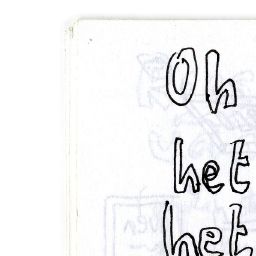 Oh
het
het